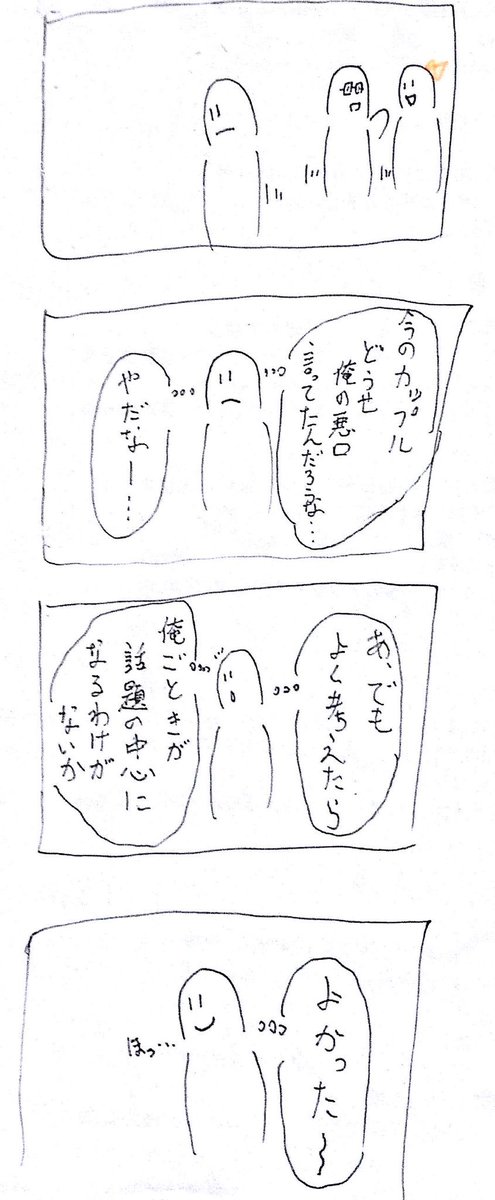 今のカップル
どうせ
俺の悪口
言ってたんだろうな…
やだなー…
あ、でも
よく考えたら
俺ごときが
話題の中心に
なるわけが
ないか
よかった〜
ほっ…